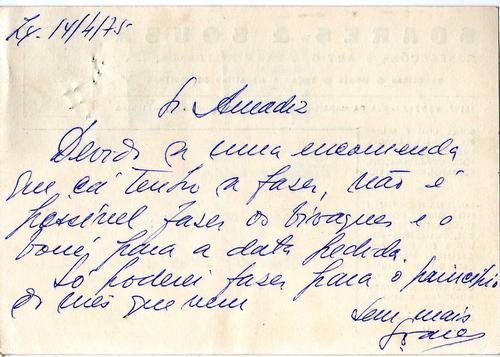 Lx. 14/4/75
Sr. Amadiz
Devido a uma encomenda
que cá tenho a fazer, não é
possível fazer os bivaques e o
boné para a data pedida.
só poderei fazer para o principio
do mês que vem
Sem mais
SOARES & SOUSA